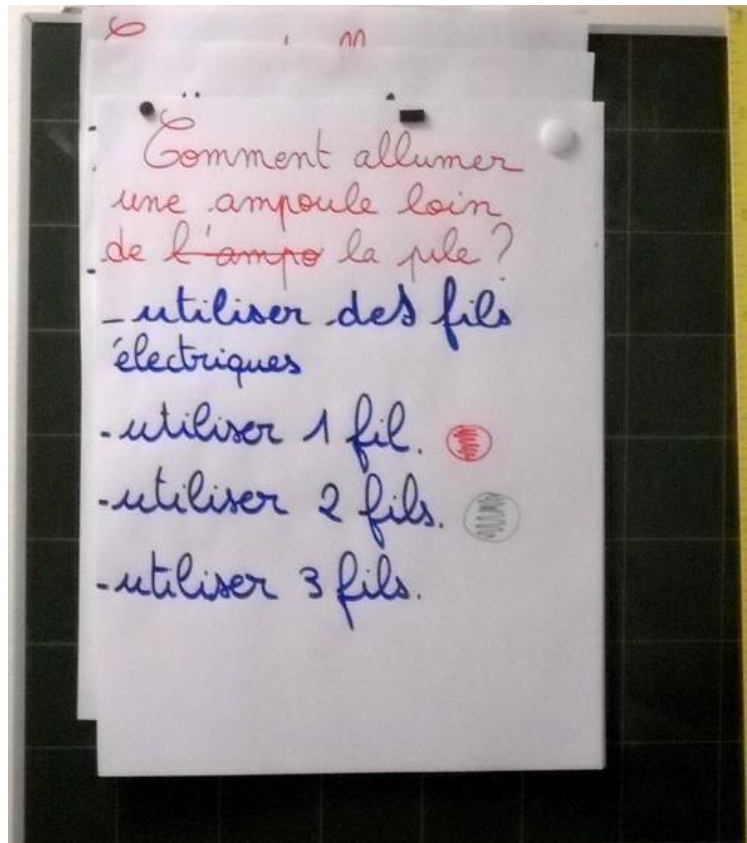 Comment allumer
une ampoule loin
de l'ampo la pile ?
- utiliser des fils
électriques
- utiliser 1 fil.
- utiliser 2 fils.
- utiliser 3 fils.